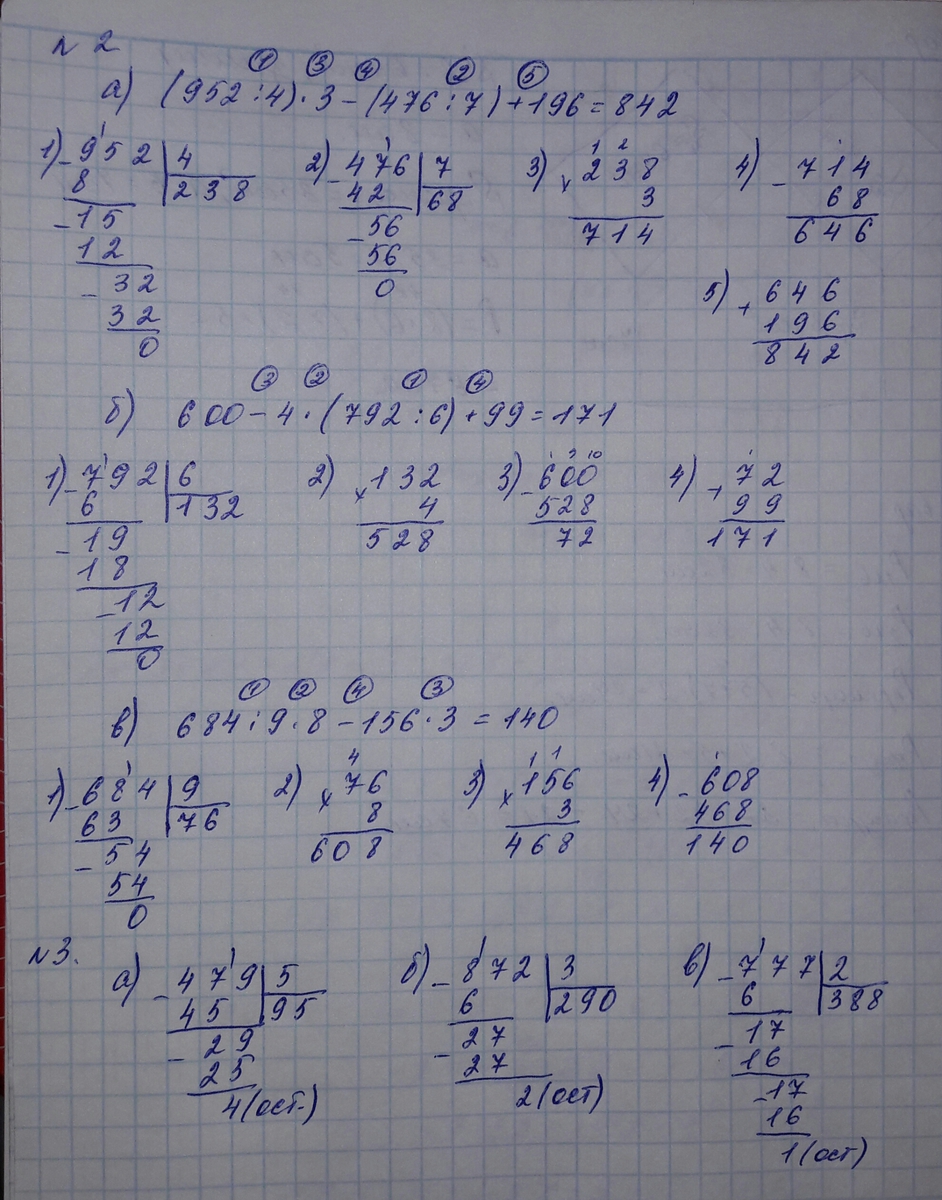 N 2
① ③ ④ ② ⑤
а) (952 : 4) · 3 − (476 : 7) + 196 = 842
1) − 952 | 4 2) − 476 | 7 3) × 238 4) − 714
8 | 238 42 | 68 3 68
− 15 − 56 714 646
12 56
− 32 0 5) + 646
32 196
0 842
③ ② ① ④
б) 600 − 4 · (792 : 6) + 99 = 171
1) − 792 | 6 2) × 132 3) − 600 4) + 72
6 | 132 4 528 99
− 19 528 72 171
18
− 12
12
0
① ② ④ ③
в) 684 : 9 · 8 − 156 · 3 = 140
1) − 684 | 9 2) × 76 3) × 156 4) − 608
63 | 76 8 3 468
− 54 608 468 140
54
0
N3.
а) − 479 | 5 б) − 872 | 3 в) − 777 | 2
45 | 95 6 | 290 6 | 388
− 29 − 27 − 17
25 27 16
4 (ост.) 2 (ост) − 17
16
1 (ост)